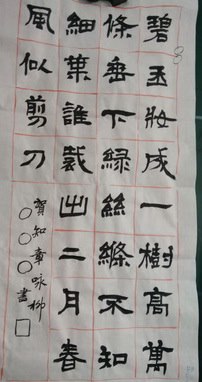 碧玉妝成一樹高萬
條垂下綠絲絛不知
細葉誰裁出二月春
風似剪刀
賀知章詠柳
○○○書□